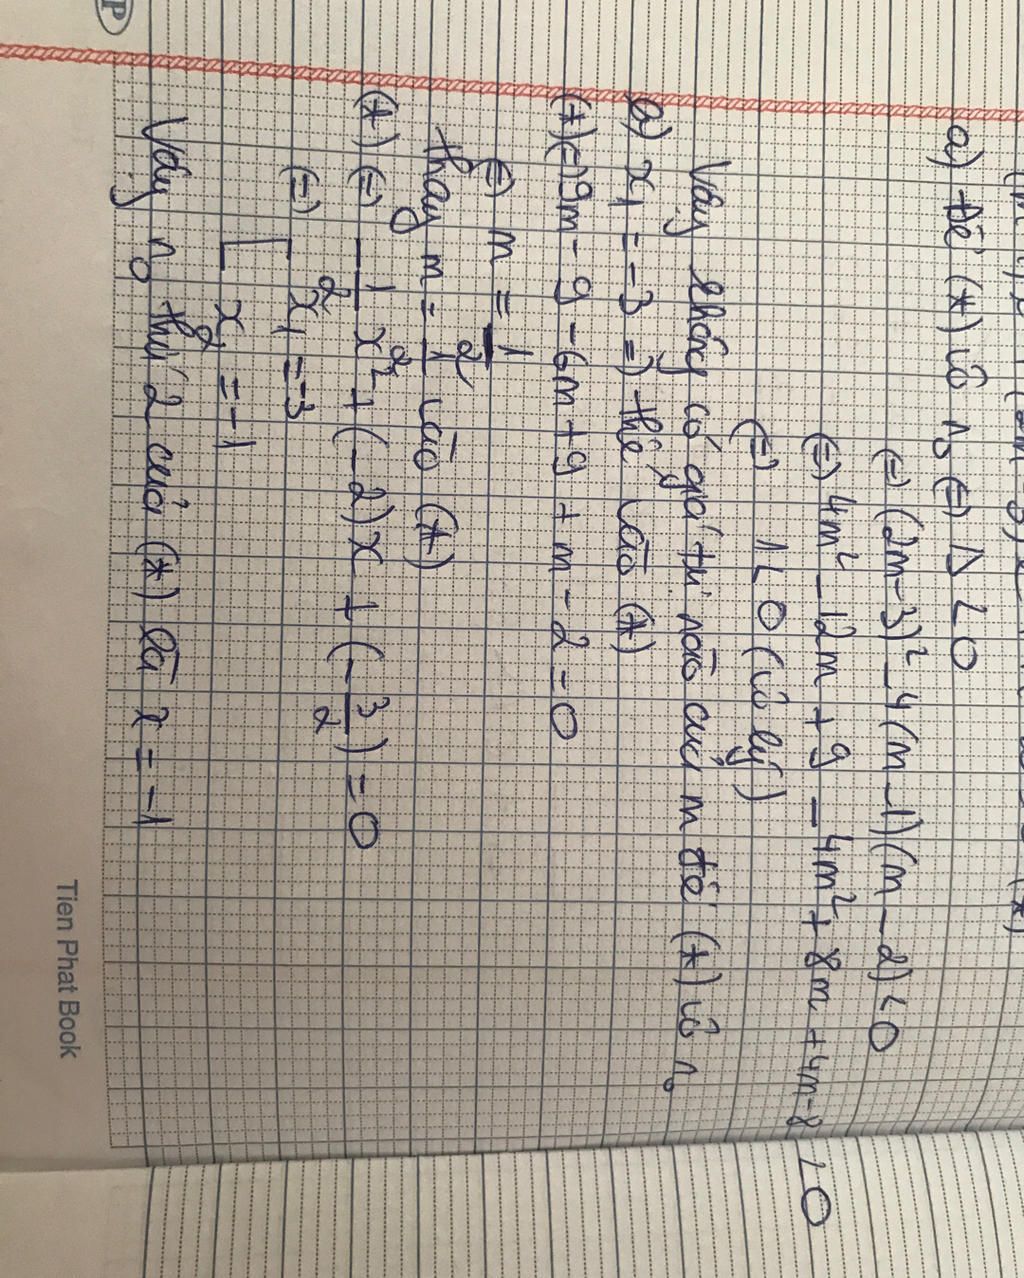 a) Để (*) vô n₀ ⇔ Δ < 0
⇔ (2m-3)² - 4(m-1)(m-2) < 0
⇔ 4m² - 12m + 9 - 4m² + 8m + 4m - 8 < 0
⇔ 1 < 0 (vô lý)
Vậy không có giá trị nào của m để (*) vô n₀
b) x₁ = -3 ⇒ thế vào (*)
(*) ⇔ 9m - 9 - 6m + 9 + m - 2 = 0
⇔ m = 1/2
thay m = 1/2 vào (*)
(*) ⇔ -1/2 x² + (-2)x + (-3/2) = 0
⇔ [ x₁ = -3
x₂ = -1
Vậy n₀ thứ 2 của (*) là x = -1
Tien Phat Book